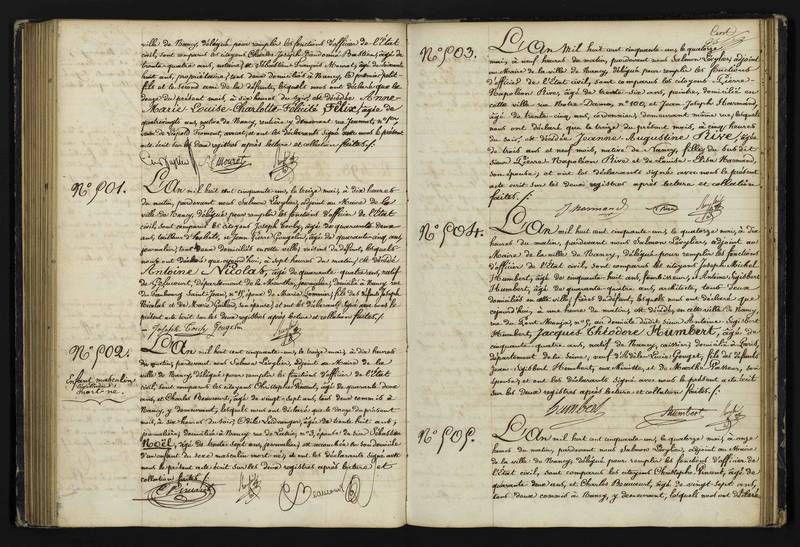 ville de Nancy, délégué pour remplir les fonctions d'officier de l'État
civil, sont comparus les citoyens Charles Joseph
trente quatre ans, et François Mouret, âgé de
huit ans, propriétaire, tous deux domiciliés à Nancy, le premier petit-
fils et le second ami de la défunte, lesquels nous ont déclaré que le
du présent mois, à dix heures du soir, est décédée Anne
Marie Louise Charlotte Félicité Félix, âgée de
native de Nancy, rentière y demeurant rue
de Léopold Froment, avocat, et ont les déclarants signé avec nous le présent
acte écrit sur les deux registres après lecture et collation faites /.
Mouret
N° 501.
L'An mil huit cent cinquante-un, le treize mai, à dix heures
du matin, pardevant nous Salmon Lévylier, adjoint au Maire de la
ville de Nancy, délégué pour remplir les fonctions d'officier de l'État
civil, sont comparus les citoyens Joseph âgé de quarante deux
ans, tailleur d'habits, et Jean Pierre Gougelin, âgé de quarante-cinq ans,
journalier, tous deux domiciliés en cette ville, voisins du défunt, lesquels
nous ont déclaré que aujourd'hui, à sept heures du matin, est décédé
Antoine Nicolas, âgé de quarante-quatre ans, natif
de département de la Meurthe, journalier, domicilié à Nancy rue
du Faubourg Saint-Jean, n° 15, époux de Marie fils des défunts Joseph
Nicolas et de Marie son épouse; et ont les déclarants signé avec nous le
présent acte écrit sur les deux registres après lecture et collation faites /.
Joseph Gougelin
N° 502.
Enfant masculin
mort-né.
L'An mil huit cent cinquante-un, le treize mai, à dix heures
du matin, pardevant nous Salmon Lévylier, adjoint au Maire de la
ville de Nancy, délégué pour remplir les fonctions d'officier de l'État
civil, sont comparus les citoyens Christophe Pinaut, âgé de quarante deux
ans, et Charles Beaucourt, âgé de vingt-sept ans, tous deux commis à
Nancy, y demeurant, lesquels nous ont déclaré que le douze du présent
mois, à dix heures du soir, âgée de trente huit ans,
journalière, domiciliée à Nancy rue n° 3, épouse de Sébastien
Noël, âgé de trente sept ans, journalier, est accouchée en son domicile
d'un enfant du sexe masculin mort-né; et ont les déclarants signé avec
nous le présent acte écrit sur les deux registres après lecture et
collation faites /.
C Pinaut
C Beaucourt
N° 503.
L'An mil huit cent cinquante-un, le quatorze
mai, à neuf heures du matin, pardevant nous Salmon Lévylier, adjoint
au Maire de la ville de Nancy, délégué pour remplir les fonctions
d'officier de l'État civil, sont comparus les citoyens Pierre
Napoléon Pive, âgé de trente-six ans, peintre, domicilié en
cette ville rue Notre-Dame, n° 100, et Jean Joseph Harmand,
âgé de trente-cinq ans, cordonnier, demeurant même rue, lesquels
nous ont déclaré que le treize du présent mois, à cinq heures
du soir, est décédée Jeanne Augustine Pive, âgée
de trois ans et neuf mois, native de Nancy, fille du susdit
sieur Pierre Napoléon Pive et de Louise Elisa Harmand,
son épouse; et ont les déclarants signé avec nous le présent
acte écrit sur les deux registres après lecture et collation
faites /.
J harmand
Pive
N° 504.
L'An mil huit cent cinquante-un, le quatorze mai, à dix
heures du matin, pardevant nous Salmon Lévylier, adjoint au
Maire de la ville de Nancy, délégué pour remplir les fonctions
d'officier de l'État civil, sont comparus les citoyens Joseph Michel
Humbert, âgé de cinquante-huit ans, fondeur, et Antoine Sigisbert
Humbert, âgé de quarante quatre ans, architecte, tous deux
domiciliés en cette ville, frères du défunt, lesquels nous ont déclaré que
aujourd'hui, à une heure du matin, est décédé en cette ville de Nancy,
rue n° 5, au domicile dudit sieur Antoine Sigisbert
Humbert, Jacques Théodore Humbert, âgé de
cinquante-quatre ans, natif de Nancy, caissier, domicilié à Paris,
département de la Seine, veuf d'Adèle Lucie Gouget, fils des défunts
Jean-Sigisbert Humbert, et de Marthe son
épouse; et ont les déclarants signé avec nous le présent acte écrit
sur les deux registres après lecture et collation faites /.
humbert
Humbert
N° 505.
L'An mil huit cent cinquante-un, le quatorze mai, à onze
heures du matin, pardevant nous Salmon Lévylier, adjoint au Maire
de la ville de Nancy, délégué pour remplir les fonctions d'officier de
l'État civil, sont comparus les citoyens Christophe Pinaut, âgé de
quarante-deux ans, et Charles Beaucourt, âgé de vingt-sept ans,
tous deux commis à Nancy, y demeurant, lesquels nous ont déclaré